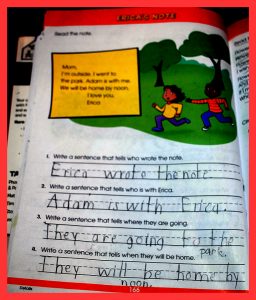 ERICA'S NOTE
Read the note.
Mom,
I'm outside. I went to
the park. Adam is with me.
We will be home by noon.
I love you,
Erica
1. Write a sentence that tells who wrote the note.
Erica wrote the note.
2. Write a sentence that tells who is with Erica.
Adam is with Erica.
3. Write a sentence that tells where they are going.
They are going to the
park.
4. Write a sentence that tells when they will be home.
They will be home by
noon.
Details
166